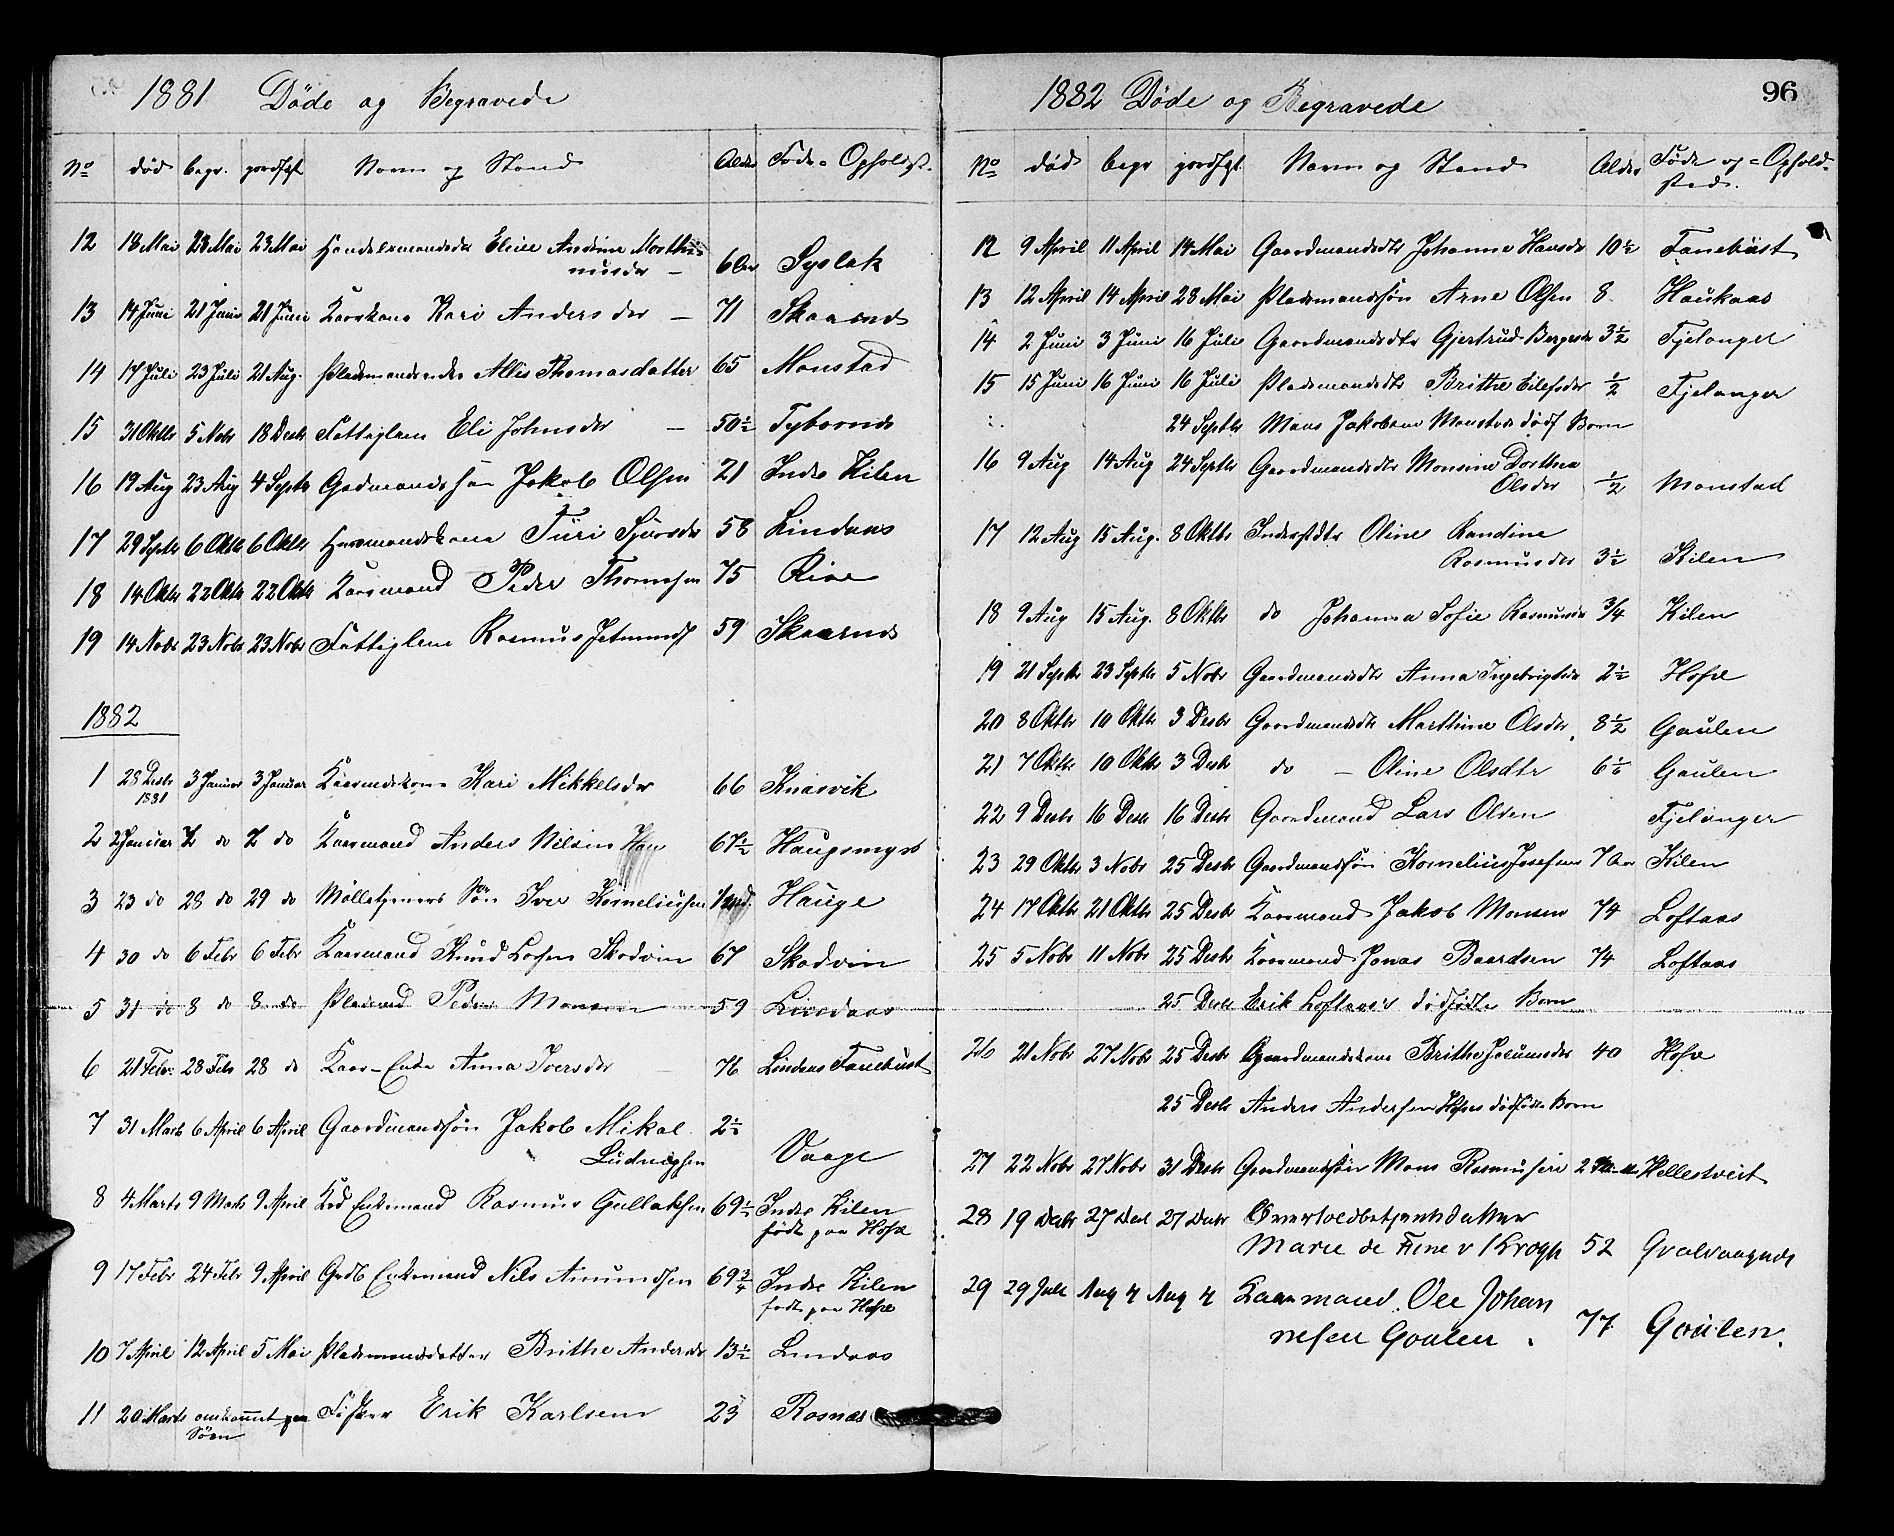 1881 Døde og Begravede
No død begr. jordfgt Navn og Stand Alder Føde- Opholdsst.
12 18 Mai 23 Mai 23 Mai Handelsmandsdtr Elicee Andrine Morthi-
nusdtr - 6 Syslak
13 14 Juni 21 Juni 21 Juni Kaarkone Kari Andersdtr - 71 Skaarnes
14 17 Juli 23 Juli 21 Aug. Pladsmandsenke Allis Thomasdatter 65 Monstad
15 31 Oktbr 5 Nobr 18 Desbr Fattiglem Eli Johnsdtr - 50½
16 19 Aug 23 Aug 4 Septbr Gadmandssøn Jakob Olsen 21 Indre Kilen
17 29 Septbr 6 Oktbr 6 Oktbr Huusmandskone Turi Sjursdtr 58 Lindaas
18 14 Oktbr 22 Oktbr 22 Oktbr Kaarmand Peder Thomassen 75 Rise
19 14 Nobr 23 Nobr 23 Nobr Fattiglem Rasmus Jetmunds 59 Skaarnes
1882
1 28 Desbr 3 Januar 3 Januar Kaarmdskone Kari Mikkelsdtr 66 Knarvik
1881
2 2 Januar 7 do 7 do Kaarmand Anders Nilsen 67½ Haugsmyr
3 23 do 28 do 29 do Mølletjeners Søn Iver Korneliussen Hauge
4 30 do 6 Febr 6 Febr Kaarmand Knud Larsen Skodvin 67 Skodvin
5 31 do 8 do 8 do Pladsmd Peder Monsen 59 Lindaas
6 21 Febr. 28 Febr 28 do Kaar-Enke Anna Iversdtr 76 Lindaas Fanebust
7 31 Marts 6 April 6 April Gaardmandssøn Jakob Mikal 2½
Ludvigsen Vaage
8 4 Marts 9 Marts 9 April Kad Enkemand Rasmus Gullaksen 69½ Indre Kilen
født paa Hope
9 17 Febr 24 Febr 9 April Gadb Enkemand Nils Amundsen 69¾ Indre Kilen
født paa Hope
10 7 April 12 April 5 Mai Pladsmandsdatter Brithe Andersdtr 13½ Lindaas
11 20 Marts omkommet paa Fisker Erik Karlsen 23 Rosnæs
Søen
1882 Døde og Begravede 96
No død begr jordfgt Navn og Stand Alder Føde og = Ophold-
sted.
12 9 April 11 April 14 Mai Gaardmandsdtr Johanne Hansdtr 10½ Fanebust
13 12 April 14 April 28 Mai Pladsmandssøn Arne Olsen 8 Haukaas
14 2 Juni 3 Juni 16 Juli Gaardmandsdtr Gjertrud Børgesdtr 3½ Fjelanger
15 15 Juni 16 Juni 16 Juli Pladsmandsdtr Brithe Eilefsdtr ½ Fjelanger
24 Septbr Mons Jakobsen Monstads dødf Barn
16 9 Aug 14 Aug 24 Septbr Gaardmandsdtr Monsine Dorthea
Olsdtr ½ Monstad
17 12 Aug 15 Aug. 8 Oktbr Inderstdtr Oline Randine
Rasmusdtr 3½ Kilen
18 9 Aug 15 Aug. 8 Oktbr do Johanna Sofie Rasmusdtr ¾ Kilen
19 21 Septbr 23 Septbr 5 Nobr Gaardmandsdtr Anna Ingebrigtsdtr 2½ Hope
20 8 Oktbr 10 Oktbr 3 Desbr Gaardmandsdtr Marthine Olsdtr 8½ Gaulen
21 7 Oktbr 10 Oktbr 3 Desbr do - Oline Olsdtr 6 Gaulen
22 9 Desbr 16 Desbr 16 Desbr Gaardmand Lars Olsen Fjelanger
23 29 Oktbr 3 Nobr 25 Desbr Gaardmandssøn Kornelius Josefsen 7 Kilen
24 17 Oktbr 21 Oktbr 25 Desbr Kaarmand Jakob Monsen 74 Loftaas
25 5 Nobr 11 Nobr 25 Desbr Kaarmand Jonas Baardsen 74 Loftaas
25 Desbr Erik Loftaas's dødfødte Barn
26 21 Nobr 27 Nobr 25 Desbr Gaardmandskone Brithe 40 Hope
25 Desbr Anders Andersen Hopes dødfødte Barn
27 22 Nobr 27 Nobr 31 Desbr Gaardmandssøn Mons Rasmusen 2 Hellestveit
28 19 Decbr 27 Dec 27 Decbr Overtoldbetjentsdatter
Marie de Fine v Krogh 52 Qvalvaagnes
29 29 Juli Aug 4 Aug 4 Kaarmand Ole Johan
nesen Goulen . 77 Goulen.